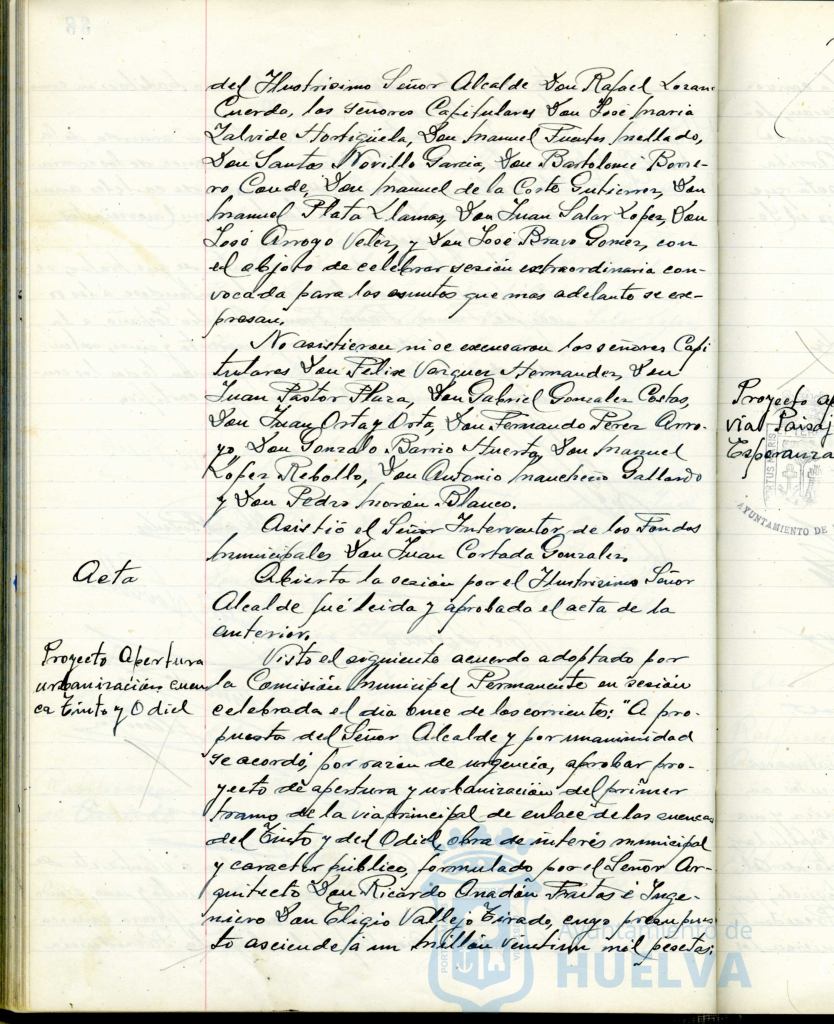 del Ilustrisimo Señor Alcalde Don Rafael Lozano
Cuerdo, los señores Capitulares Don José Maria
Zalvide Hortigüela, Don Manuel Fuentes Mellado,
Don Santos Novillo Garcia, Don Bartolomé Borre-
ro Conde, Don Manuel de la Corte Gutierrez, Don
Manuel Plata Llamas, Don Juan Salas Lopez, Don
José Arroyo Velez, y Don José Bravo Gomez, con
el objeto de celebrar sesión extraordinaria con-
vocada para los asuntos que mas adelante se ex-
presan.
No asistieron ni se excusaron los señores Capi
tulares Don Felix Vazquez Hernandez, Don
Juan Pastor Plaza, Don Gabriel Gonzalez Costas,
Don Juan Orta y Orta, Don Fernando Perez Arro-
yo, Don Gonzalo Barrio Huerta, Don Manuel
Lopez Rebollo, Don Antonio Mancheño Gallardo
y Don Pedro Morón Blanco.
Asistió el Señor Interventor de los Fondos
Municipales Don Juan Cortada Gonzalez.
Acta
Abierta la sesión por el Ilustrisimo Señor
Alcalde fué leida y aprobada el acta de la
anterior.
Proyecto Apertura
urbanización cuen
ca Tinto y Odiel
Visto el siguiente acuerdo adoptado por
la Comisión Municipal Permanente en sesión
celebrada el dia once de los corrientes: "A pro-
puesta del Señor Alcalde y por unanimidad
se acordó, por razón de urgencia, aprobar pro-
yecto de apertura y urbanización del primer
tramo de la via principal de enlace de las cuencas
del Tinto y del Odiel, obra de interés municipal
y caracter público, formulado por el Señor Ar-
quitecto Don Ricardo Anadón Frutos é Inge-
niero Don Eligio Vallejo Tirado, cuyo presupues
to asciende á un millón veintiun mil pesetas;
Proyecto ap
via Paisaj
Esperanza
AYUNTAMIENTO DE
Ayuntamiento de
HUELVA